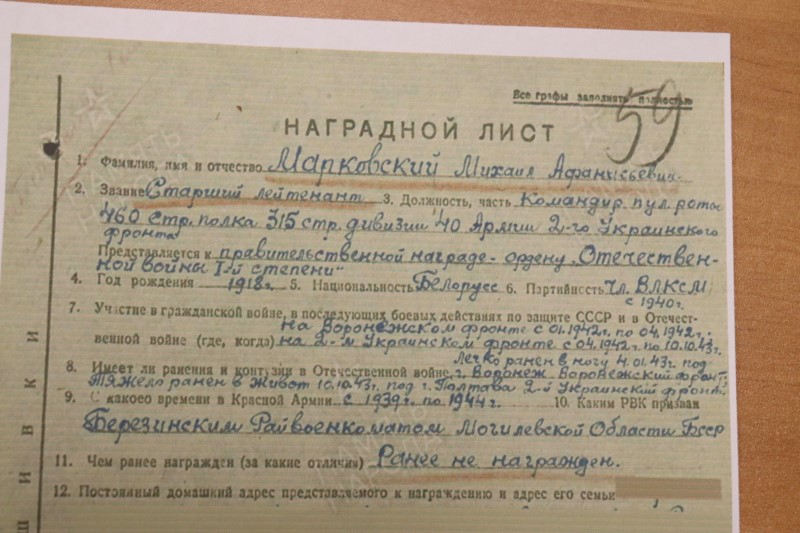 Все графы заполнять полностью
59
НАГРАДНОЙ ЛИСТ
1. Фамилия, имя и отчество Марковский Михаил Афанасьевич
2. Звание Старший лейтенант 3. Должность, часть Командир пул. роты
460 стр. полка 315 стр. дивизии 40 Армии 2-го Украинского
фронта
Представляется к правительственной награде - ордену „Отечествен-
ной войны I-й степени"
4. Год рождения 1918г. 5. Национальность Белорусс 6. Партийность Чл. ВЛКСМ
с 1940г.
7. Участие в гражданской войне, в последующих боевых действиях по защите СССР и в Отечест-
на Воронежском фронте с 01.1942г. по 04.1942г.
венной войне (где, когда) на 2-м Украинском фронте с 04.1942г по 10.10.43г.
легко ранен в ногу 4.01.43г. под
8. Имеет ли ранения и контузии в Отечественной войне г. Воронеж Воронежский фронт,
тяжело ранен в живот 10.10.43г. под г. Полтава 2-й Украинский фронт.
9. С какого времени в Красной Армии с 1939г. по 1944г. 10. Каким РВК призван
Березинским Райвоенкоматом Могилевской Области БССР
11. Чем ранее награжден (за какие отличия) Ранее не награжден.
12. Постоянный домашний адрес представляемого к награждению и адрес его семьи
ШИВКИ
ПАМЯТЬ